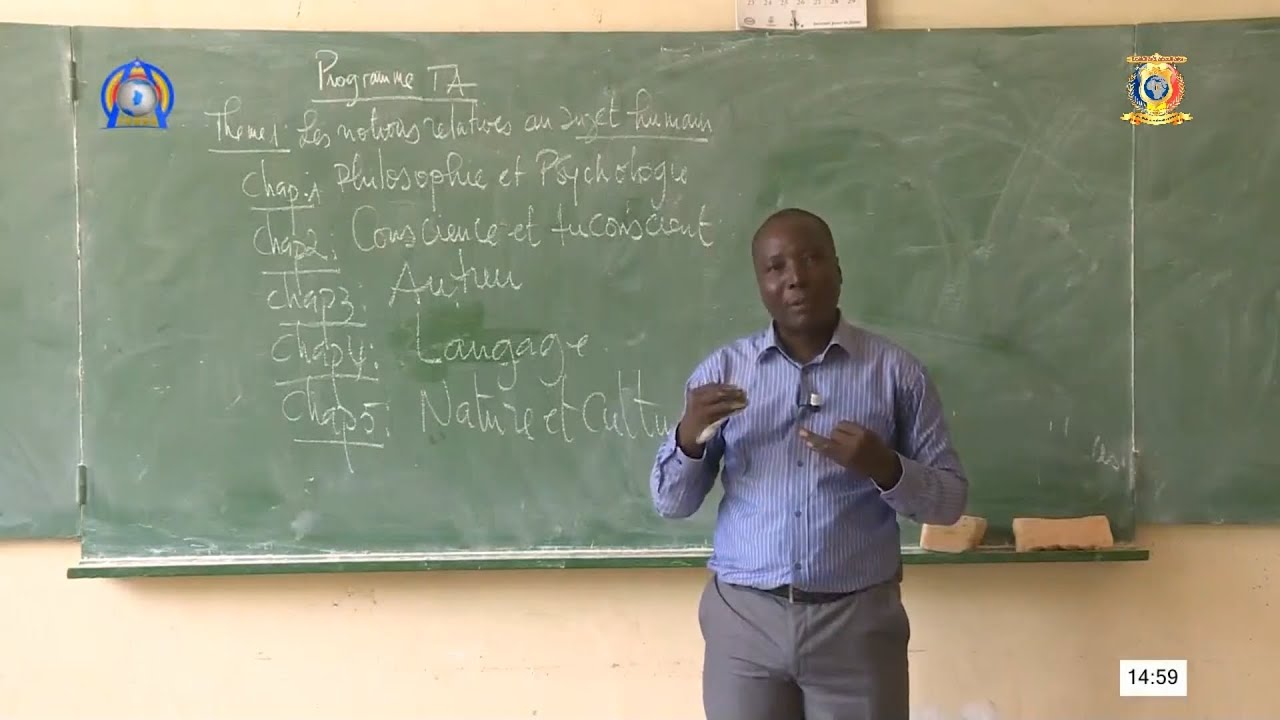 23 24 25 26 27 28 29
Programme TA
Thème 1: Les notions relatives au sujet humain
Chap.1 Philosophie et Psychologie
Chap2: Conscience et Inconscient
Chap3: Autrui
Chap4: Langage
Chap5: Nature et Cultu
14:59